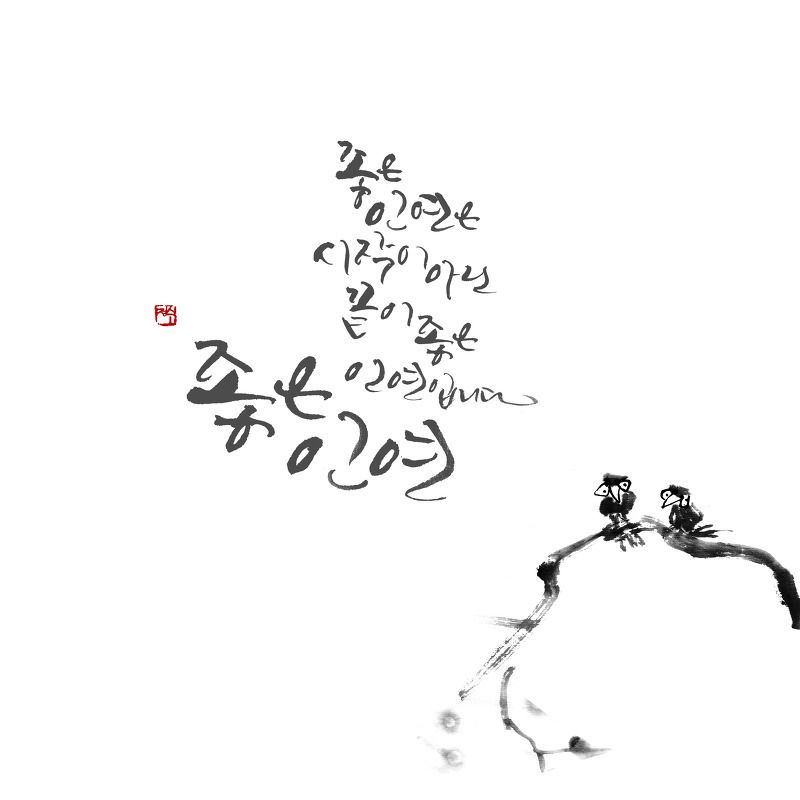 좋은
인연은
시작이 아닌
끝이 좋은
인연입니다
좋은
인연